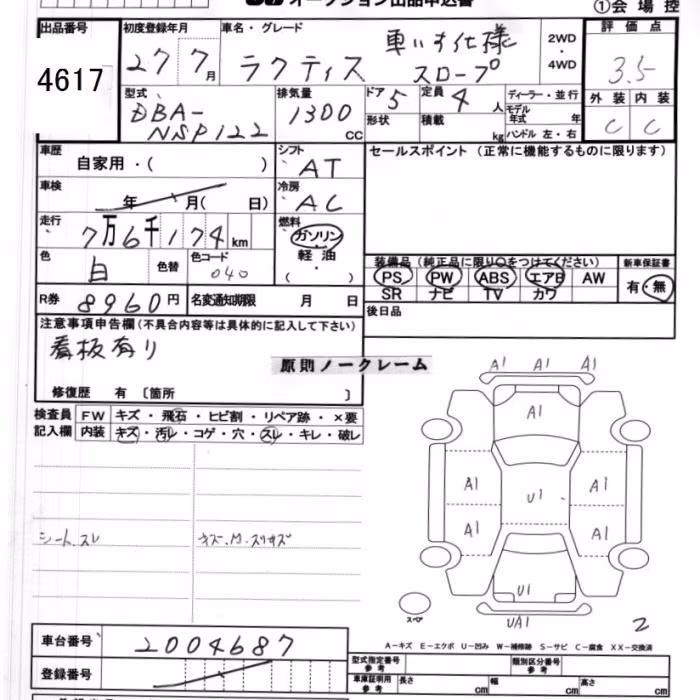 オークション出品申込書
①会場控
出品番号
4617
初度登録年月
27 7月
車名・グレード
ラクティス 車いす仕様 スロープ
2WD
・
4WD
評価点
3.5
外装 内装
C C
型式
DBA-
NSP122
排気量
1300 cc
ドア 5
定員 4 人
形状
積載 kg
ディーラー・並行
モデル年式 年
ハンドル 左・右
車歴
自家用・( )
シフト
AT
セールスポイント (正常に機能するものに限ります)
車検
年 月( 日)
冷房
AC
走行
7万6千174km
燃料
ガソリン
軽油
( )
色
白
色替
色コード
040
装備品 (純正品に限り○をつけてください)
PS PW ABS エアB AW
SR ナビ TV カワ
新車保証書
有・無
R券 8960円
名変通知期限 月 日
後日品
注意事項申告欄(不具合内容等は具体的に記入して下さい)
看板有り
原則ノークレーム
修復歴 有 〔箇所 〕
検査員 FW キズ・飛石・ヒビ割・リペア跡・×要
記入欄 内装 キズ・汚レ・コゲ・穴・スレ・キレ・破レ
シートスレ
キズ.M.スリキズ
A1 A1 A1
A1
A1 U1 A1
A1 A1
U1
UA1
スペア
2
A-キズ E-エクボ U-凹み W-補修跡 S-サビ C-腐食 XX-交換済
車台番号 2004687
登録番号
型式指定番号 参考
類別区分番号 参考
車庫証明用 参考
長さ cm
幅 cm
高さ cm